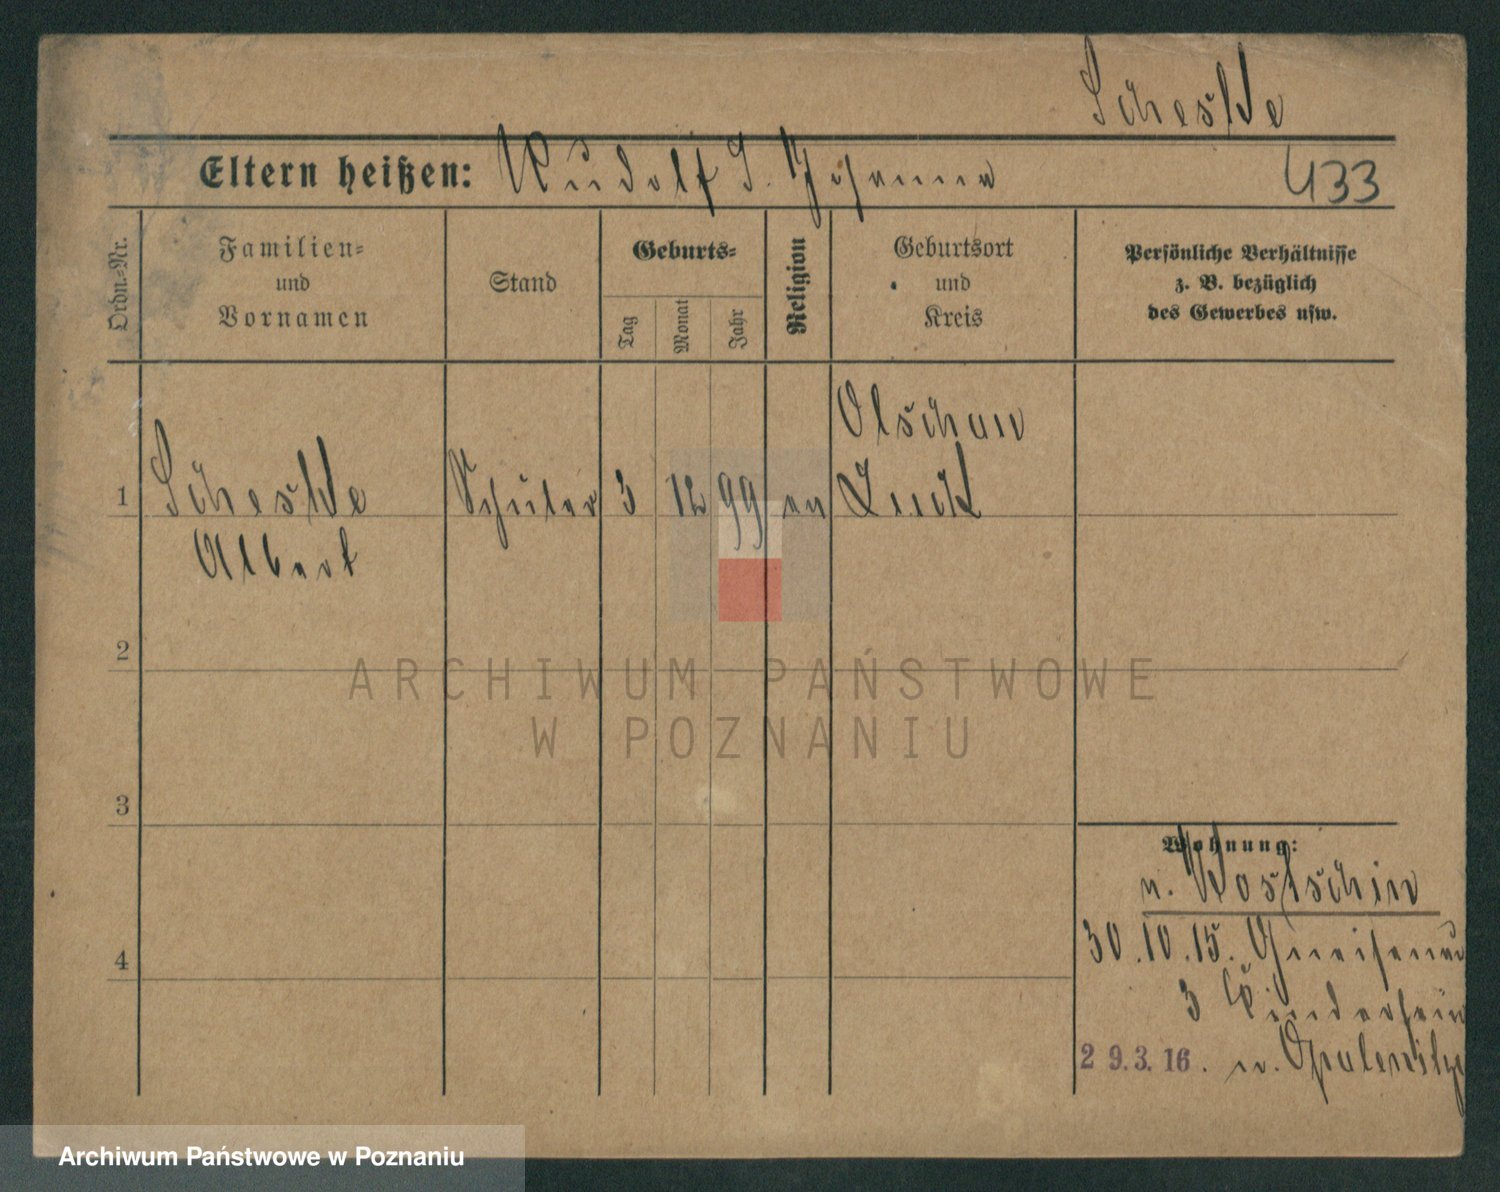 Scheske
Eltern heißen: Rudolf J. Johanna
433
Ordn.-Nr.
Familien-
und
Vornamen
Stand
Geburts-
Tag
Monat
Jahr
Religion
Geburtsort
und
Kreis
Persönliche Verhältnisse
z. B. bezüglich
des Gewerbes usw.
Olschan
1 Scheske Schüler 3 12 99 ev
Albert
2
ARCHIWUM PAŃSTWOWE
W POZNANIU
3
Wohnung:
n. Kostschin
4
30.10.15. Gneisenau
3 Kinderheim
29.3.16. n. Opalenitza
Archiwum Państwowe w Poznaniu